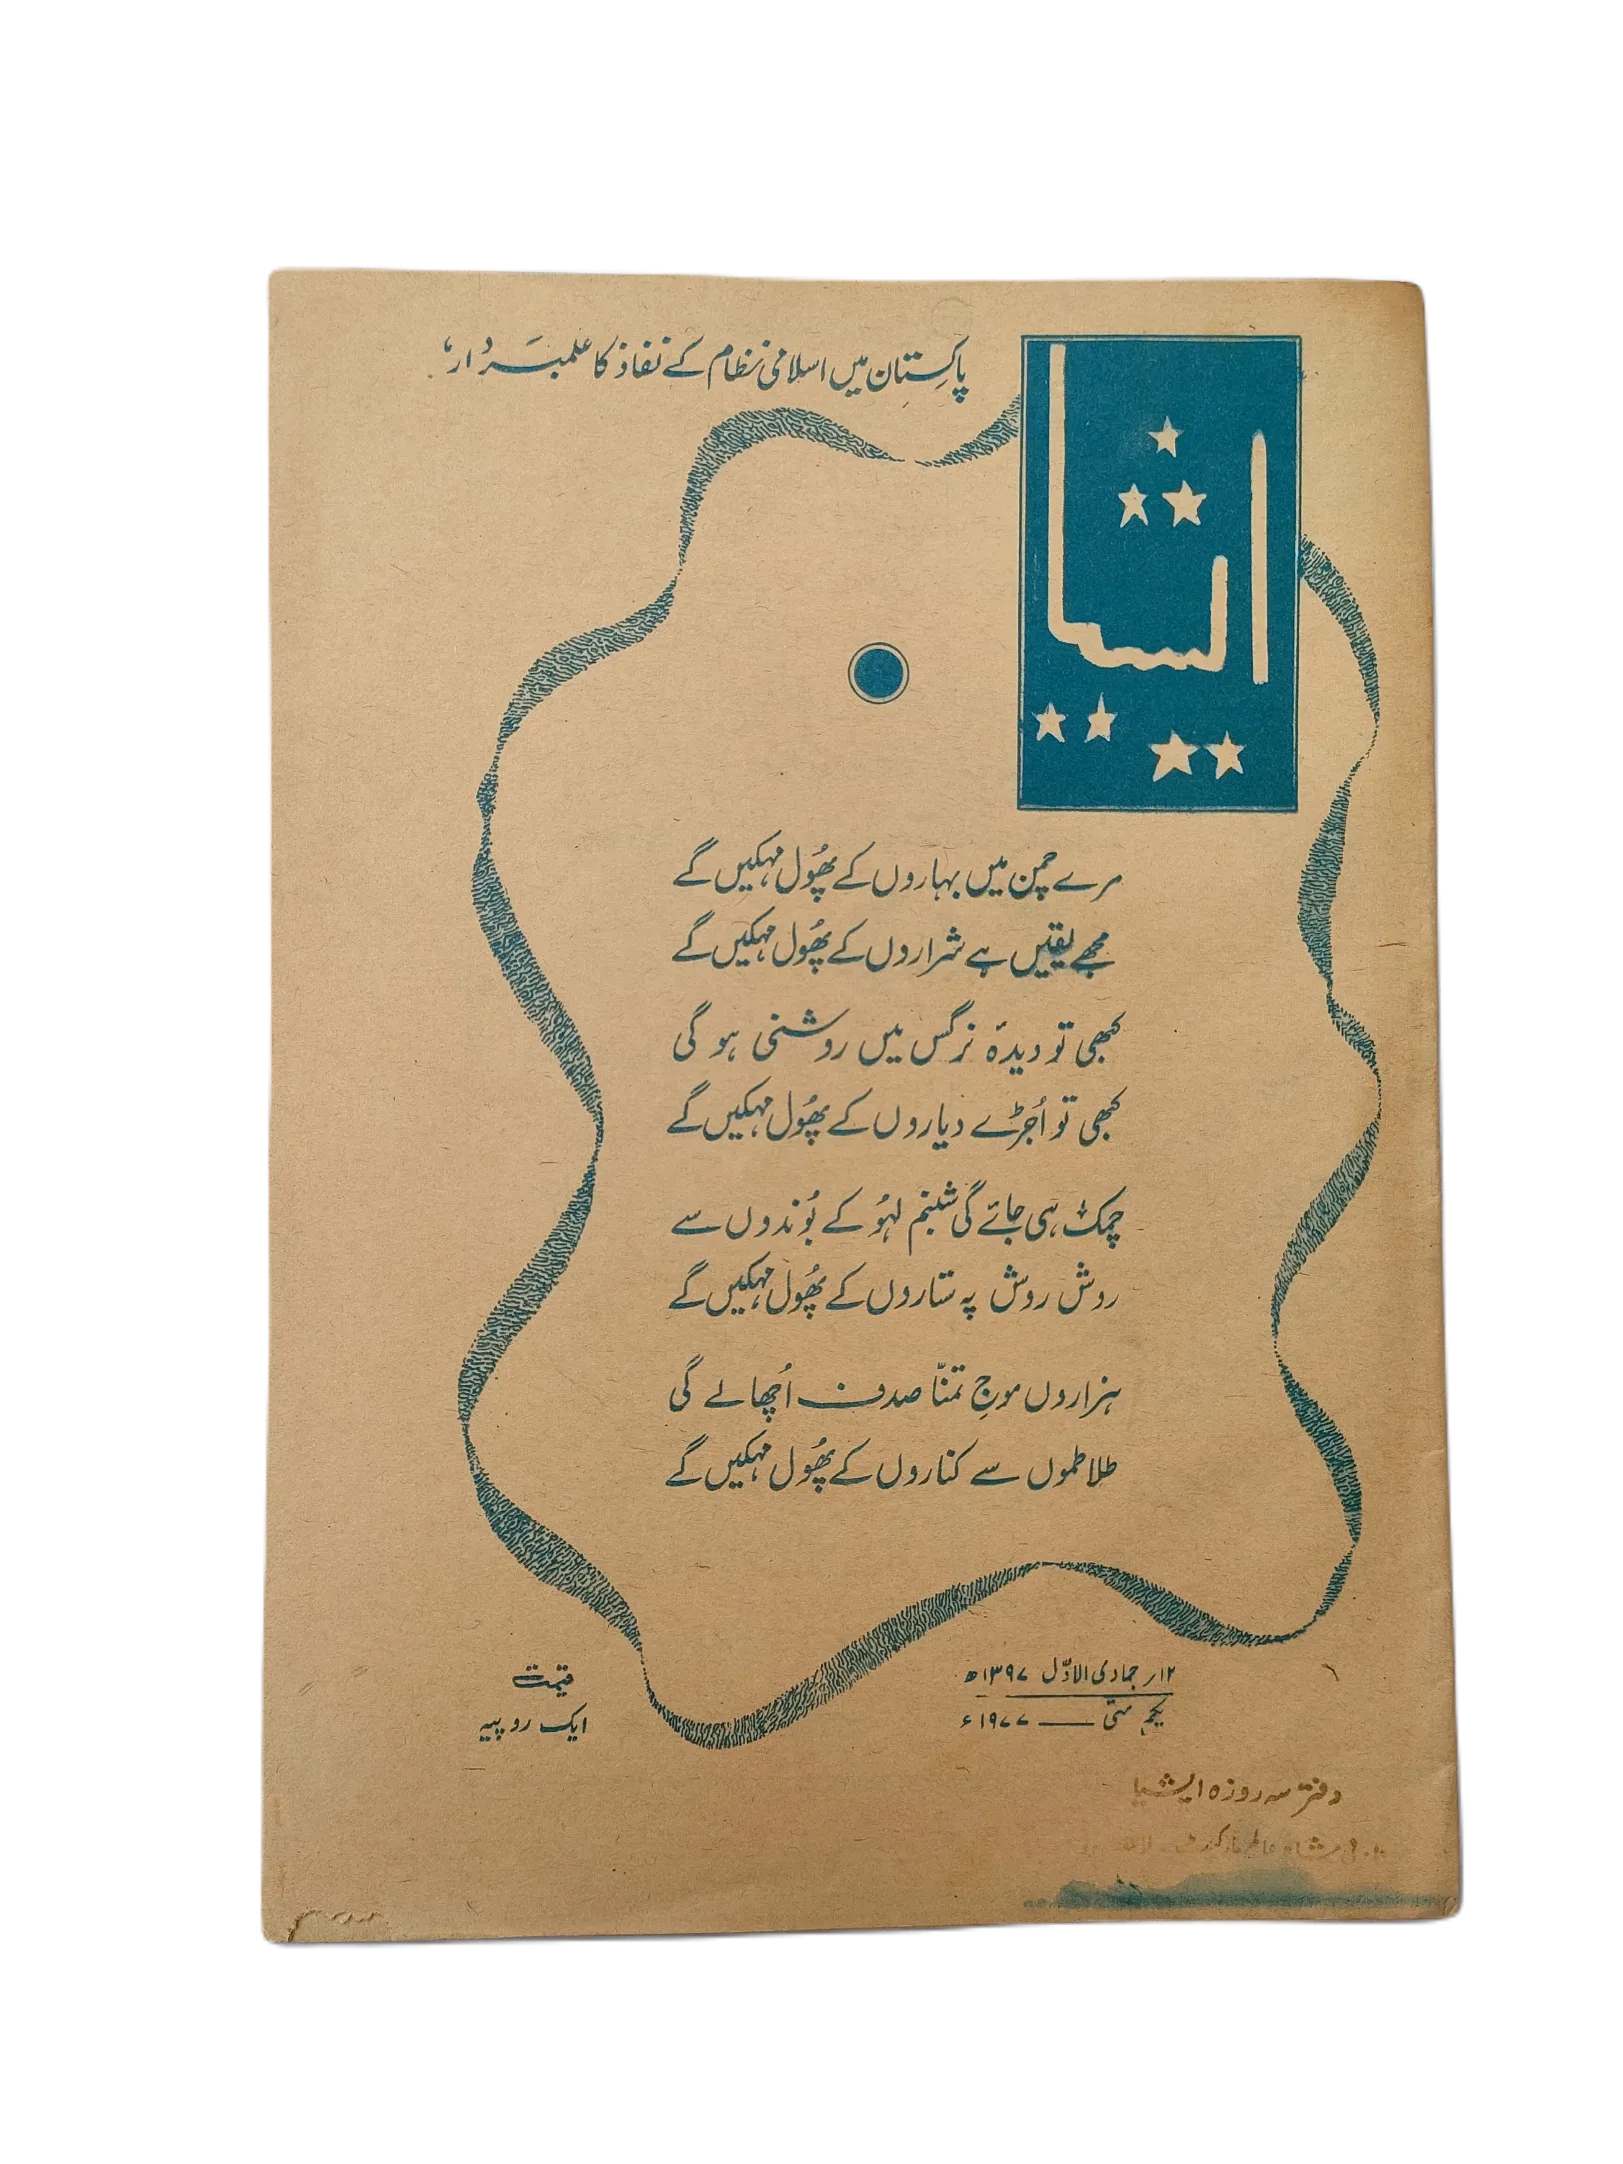 پاکستان میں اسلامی نظام کے نفاذ کا علمبردار،
ایشیا
مرے چمن میں بہاروں کے پھُول مہکیں گے
مجھے یقیں ہے شراروں کے پھُول مہکیں گے
کبھی تو دیدۂ نرگس میں روشنی ہو گی
کبھی تو اُجڑے دیاروں کے پھُول مہکیں گے
چمک ہی جائے گی شبنم لہُو کے بُوندوں سے
روش روش پہ ستاروں کے پھُول مہکیں گے
ہزاروں موجِ تمنّا صدف اُچھالے گی
طلاطموں سے کناروں کے پھُول مہکیں گے
۱۲ر جمادی الاوّل ۱۳۹۷ھ
یکم مئی — ۱۹۷۷ء
قیمت
ایک روپیہ
دفتر سہ روزہ ایشیا
شاہ عالم مارکیٹ